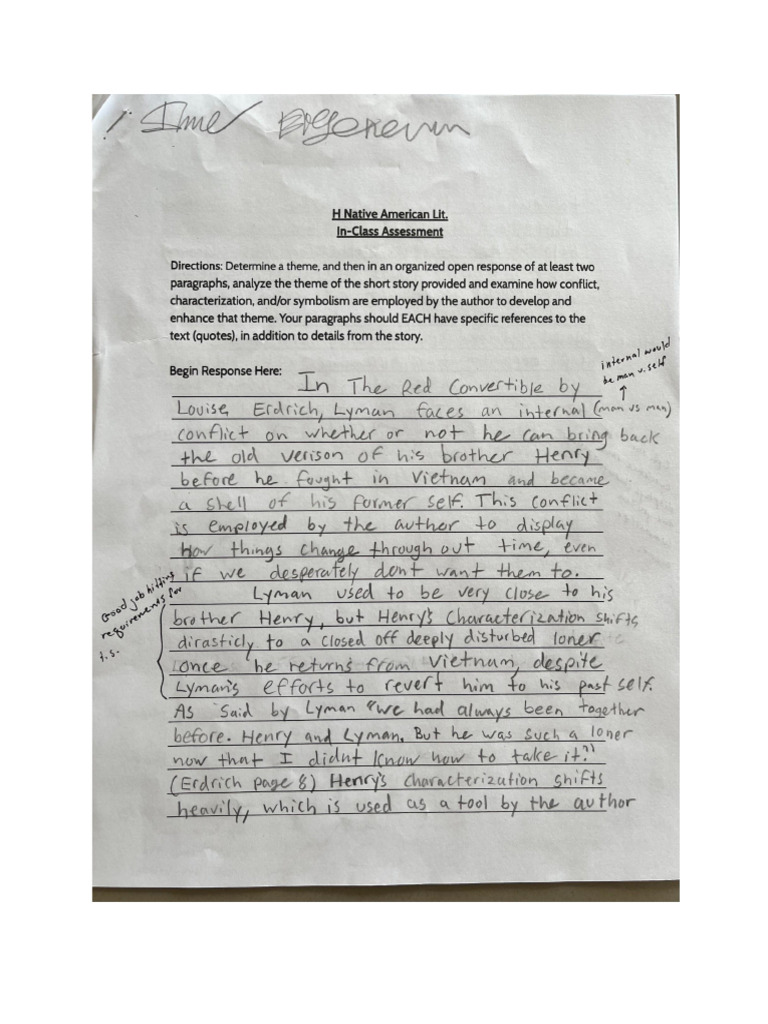 H Native American Lit.
In-Class Assessment
Directions: Determine a theme, and then in an organized open response of at least two
paragraphs, analyze the theme of the short story provided and examine how conflict,
characterization, and/or symbolism are employed by the author to develop and
enhance that theme. Your paragraphs should EACH have specific references to the
text (quotes), in addition to details from the story.
internal would
be man v. self
Begin Response Here: In The Red Convertible by
Louise Erdrich, Lyman faces an internal (man vs man)
conflict on whether or not he can bring back
the old verison of his brother Henry
before he fought in Vietnam and became
a shell of his former self. This conflict
is employed by the author to display
How things change through out time, even
if we desperately dont want them to.
Good job hitting
requirements for
t.s.
Lyman used to be very close to his
brother Henry, but Henry's Characterization shifts
dirasticly to a closed off deeply disturbed loner
once he returns from Vietnam, despite
Lyman's efforts to revert him to his past self.
As said by Lyman "we had always been together
before. Henry and Lyman. But he was such a loner
now that I didnt know how to take it."
(Erdrich page 8) Henry's characterization shifts
heavily, which is used as a tool by the author